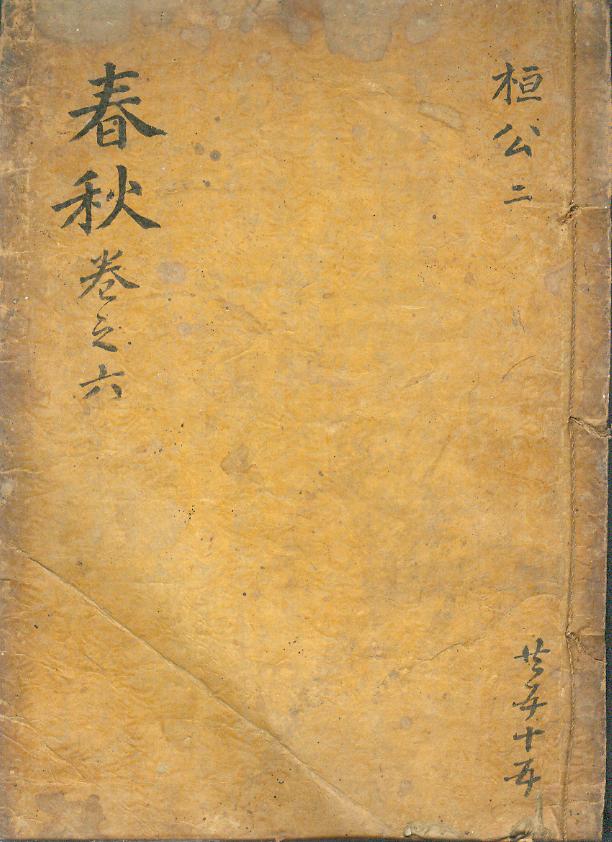 桓公二
共五十五
春秋卷之六